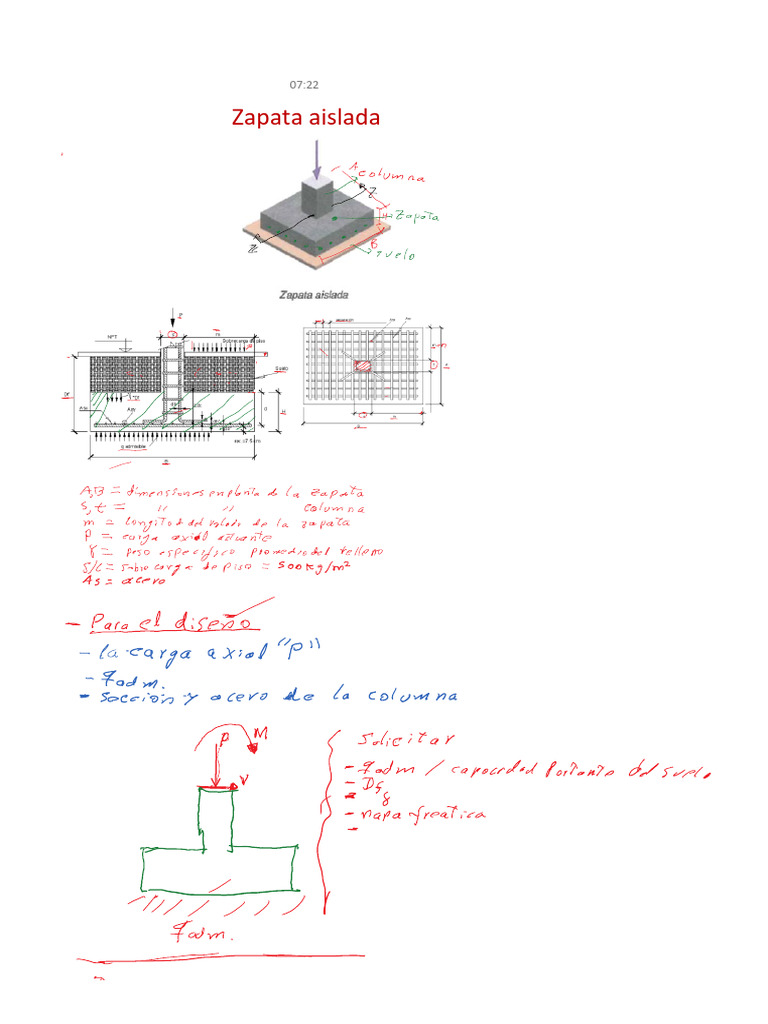 07:22
Zapata aislada
A
columna
Z
H
Zapata
B
Z
suelo
Zapata aislada
P
NPT
m
Sobrecarga de piso
Suelo
Df
d
h
q admisible
rec. ≥7.5 cm
A,B = dimensiones en planta de la zapata
s,t = " " columna
m = longitud del volado de la zapata
P = carga axial actuante
γ = peso específico promedio del relleno
S/C = sobre carga de piso = 500kg/m²
As = acero
- Para el diseño
- la carga axial "P"
- qadm.
- sección y acero de la columna
P
M
V
qadm.
Solicitar
- qadm / capacidad portante del suelo
- Df
- γ
- napa freatica
-